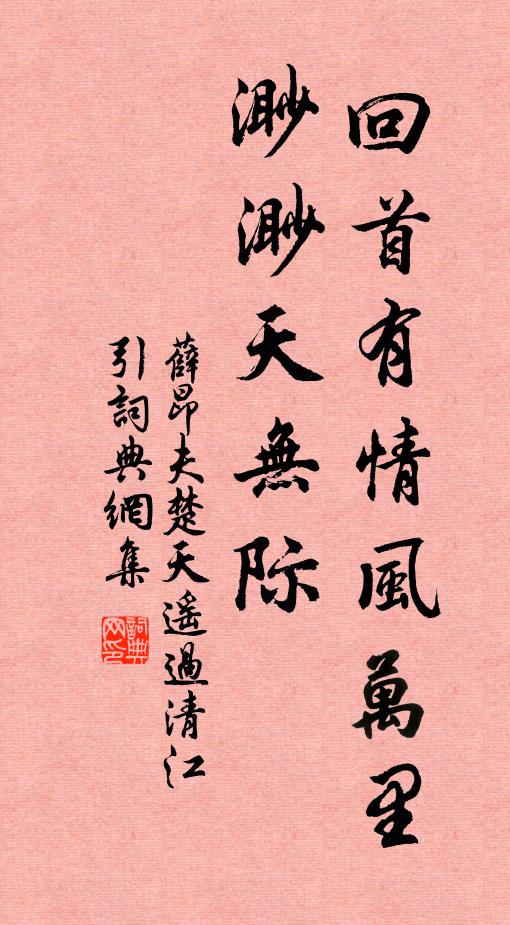 回首有情風萬里
渺渺天無际
薛昂夫楚天遥過清江
引詞典網集
詞典网印